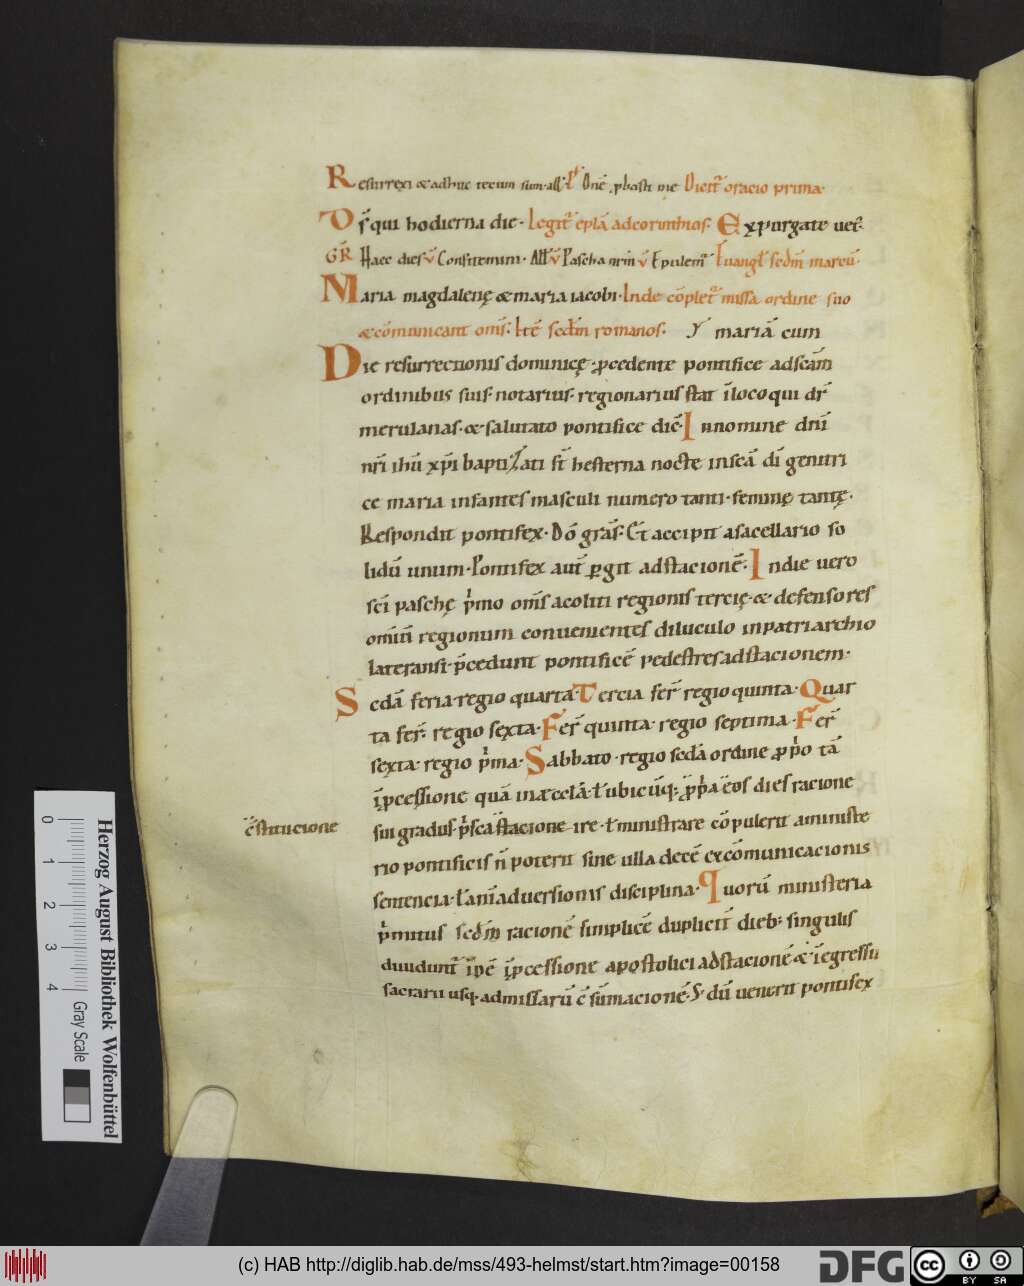 Resurrexi & adhuc tecum sum. all'. Ps Dn̄e ꝓbasti me Dicit᷑ oracio prima.
Ds̄ qui hodierna die. Legit᷑ epl̄a ad corinthios. Expurgate uet᷑.
GR̄ Haec dies v̄ Confitemini. All' v̄ Pascha nr̄m v̄ Epulem᷑ Euangl' sedm̄ marcū.
Maria magdalenę & maria iacobi. Inde cōplet᷑ missa ordine suo
& cōmunicant om̄s. Itē sedm̄ romanos. mariā cum
Die resurrectionis dominicę ꝓcedente pontifice ad scām
ordinibus suis. notarius. regionarius stat ī loco qui dr̄
merulanas. & salutato pontifice dic̄. In nomine dn̄i
nr̄i ihū xp̄i baptizati st̄ hesterna nocte in scā di ̄genitri
ce maria infantes masculi numero tanti. feminę tantę.
Respondit pontifex. Dō grās. Et accipit a sacellario so
lidū unum. Pontifex aut̄ ꝑgit ad stacionē. In die uero
sc̄i paschę p̄mo om̄s acoliti regionis tercię. & defensores
omniū regionum conuenientes diluculo in patriarchio
lateransi. p̄cedunt pontificē pedestres ad stacionem.
Sedā feria. regio quarta. Tercia fer̄ regio quinta. Quar
ta fer̄. regio sexta. Fer̄ quinta. regio septima. Fer̄
sexta. regio p̄ma. Sabbato. regio sedā ordine ꝓ p̄o tā
ī ꝓcessione quā in æcclā. ł ubicūq; ꝓp̄a eos dies racione
c̄stitucione
sui gradus p̄scā stacione ire. ł ministrare cōpulerit a ministe
rio pontificis n̄ poterit sine ulla decē excōmunicacionis
sentencia. ł animaduersionis disciplina. Quorū ministeria
p̄mitus sedm̄ racionē simplicē duplicit̄ dieb; singulis
diuidunt᷑ īpē ī ꝓcessione apostolici ad stacionē & ī egressu
sacrarii usq. ad missarū c̄sūmacionē. dū uenerit pontifex
0 1 2 3 4
Herzog August Bibliothek Wolfenbüttel
Gray Scale
(c) HAB http://diglib.hab.de/mss/493-helmst/start.htm?image=00158
DFG
cc BY SA